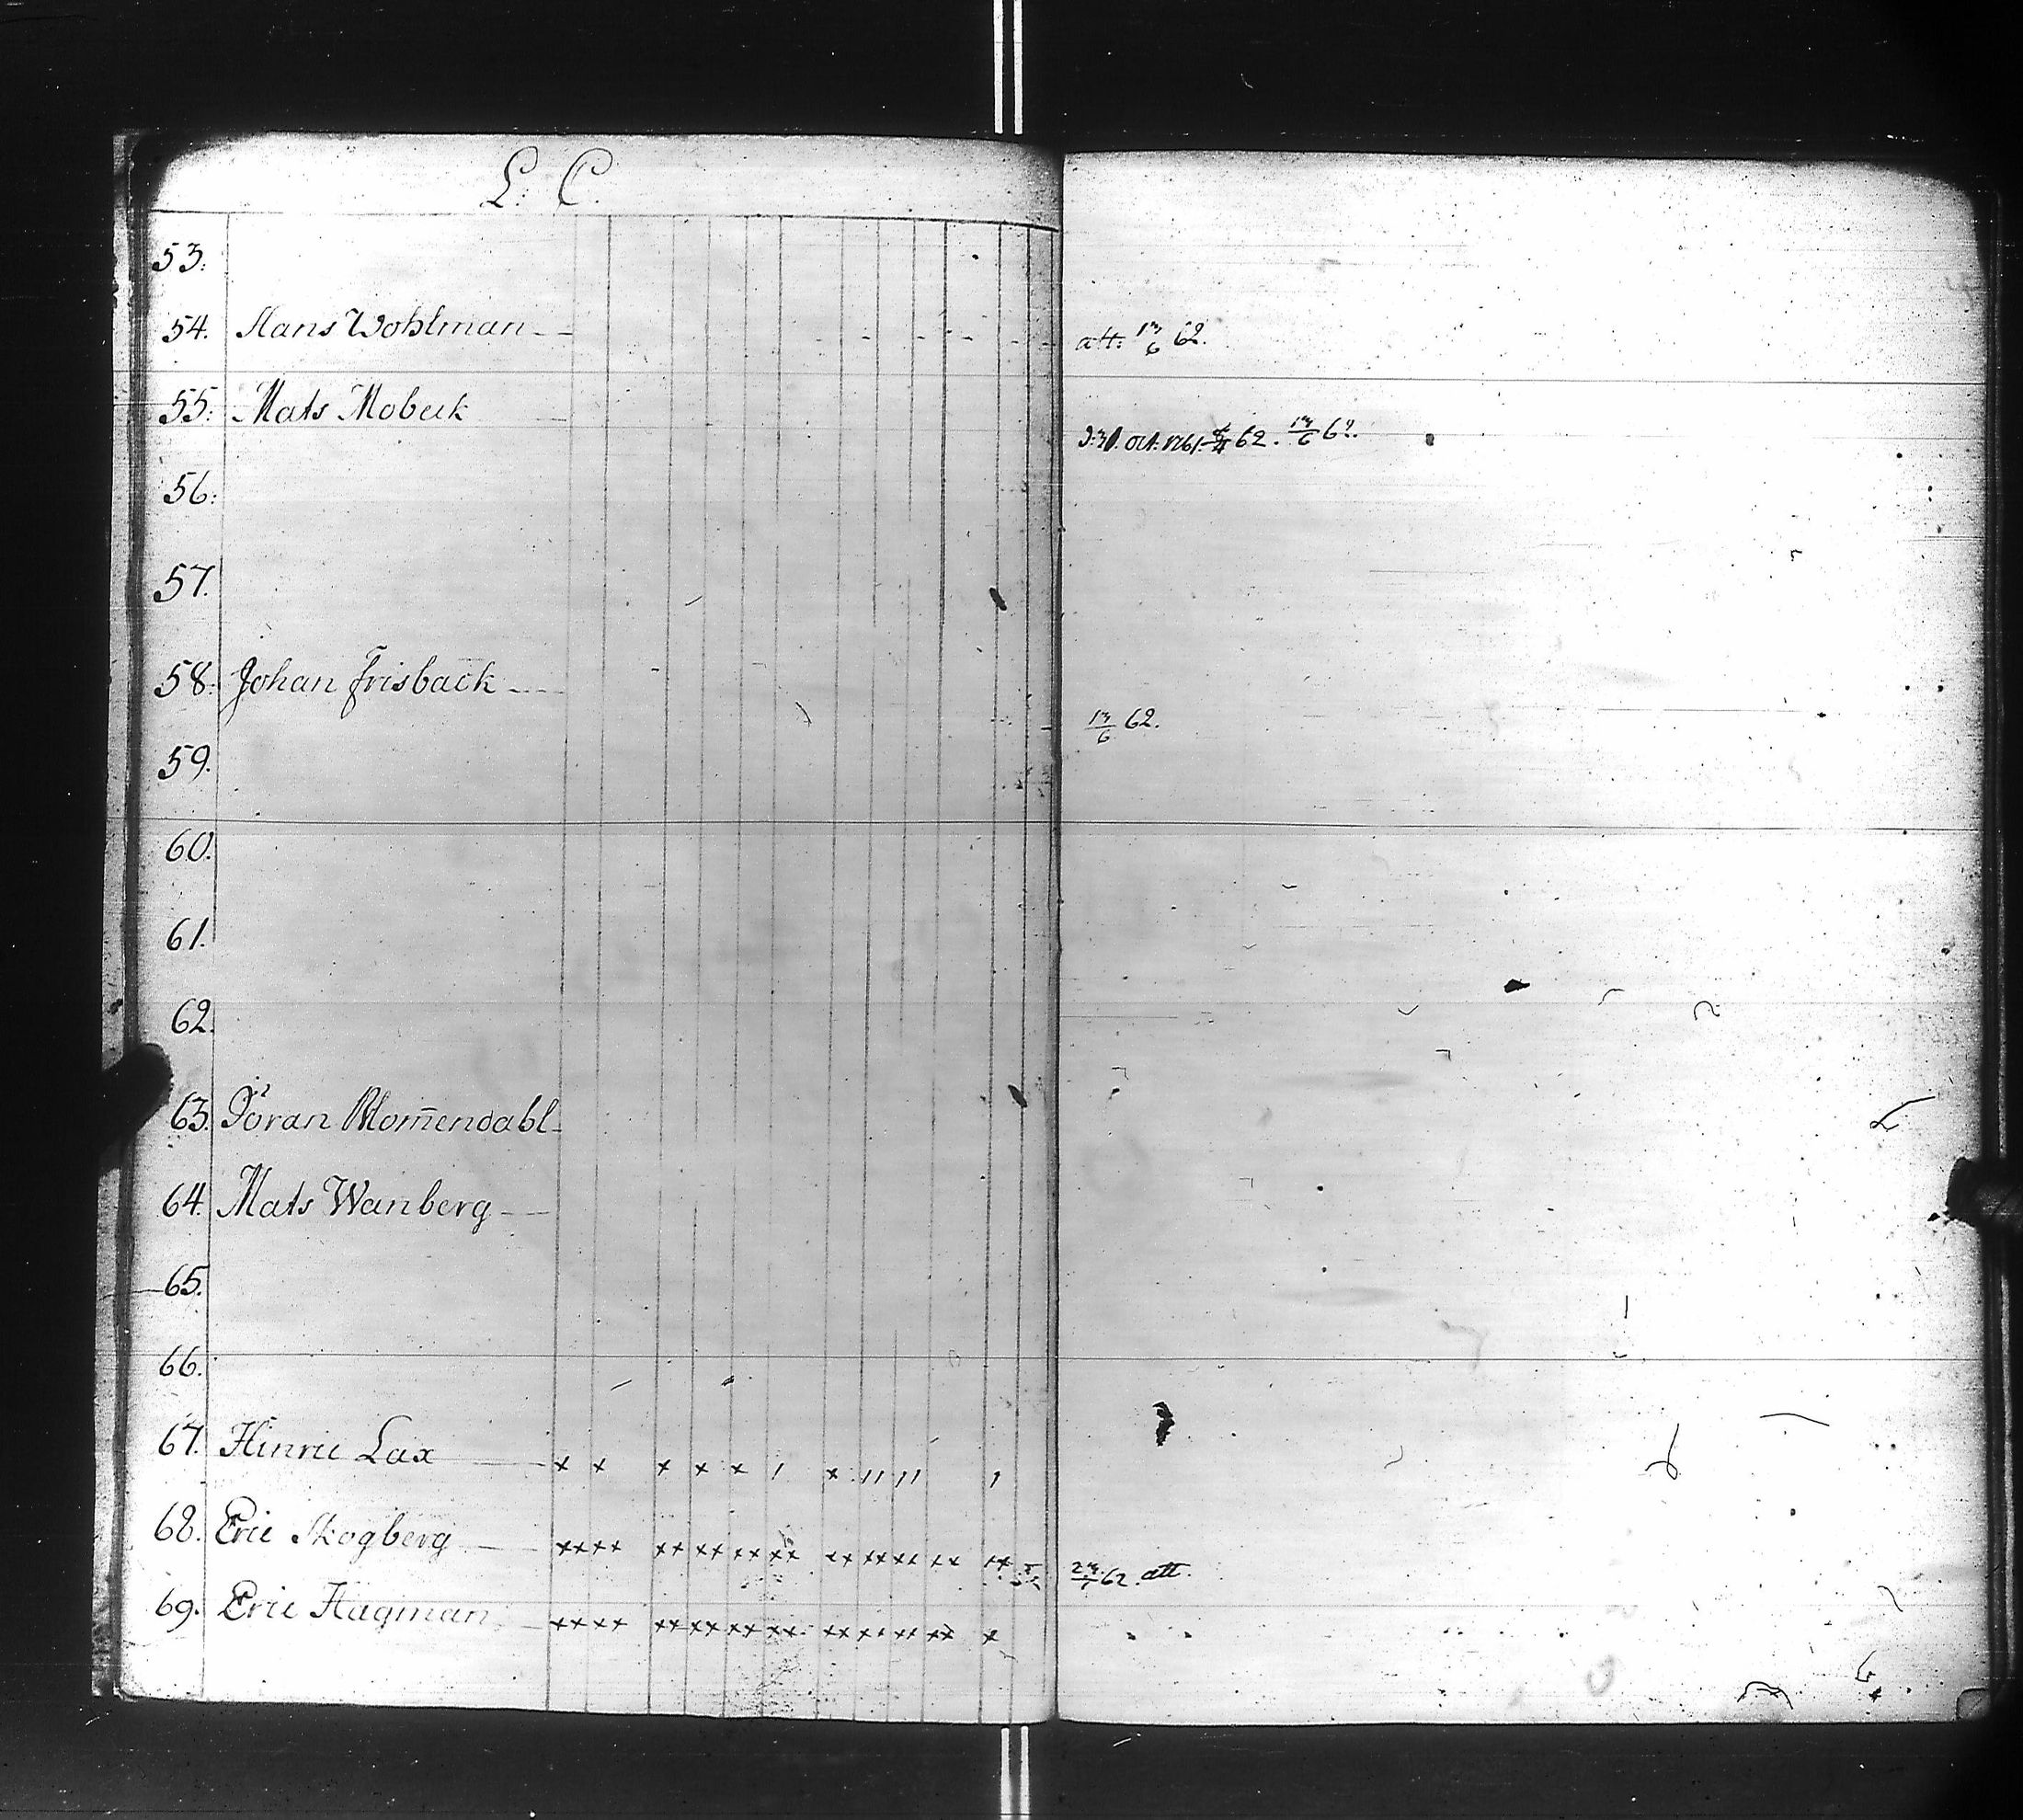 L: C.
53:
54. Hans Wohlman att: 13/6 62.
55: Mats Mobeck d: 31. oct: 1761. 62. 13/6 62.
56:
57.
58: Johan Frisbäck 13/6 62.
59.
60.
61.
62.
63. Jöran Blom̄endahl
64. Mats Wanberg
65.
66.
67. Hinric Lax x x x x x / x // // /
68. Eric Skogberg xx xx xx xx xx xx xx xx xx xx 23/7 62. att.
69. Eric Hagman xx xx xx xx xx xx xx xx xx xx x